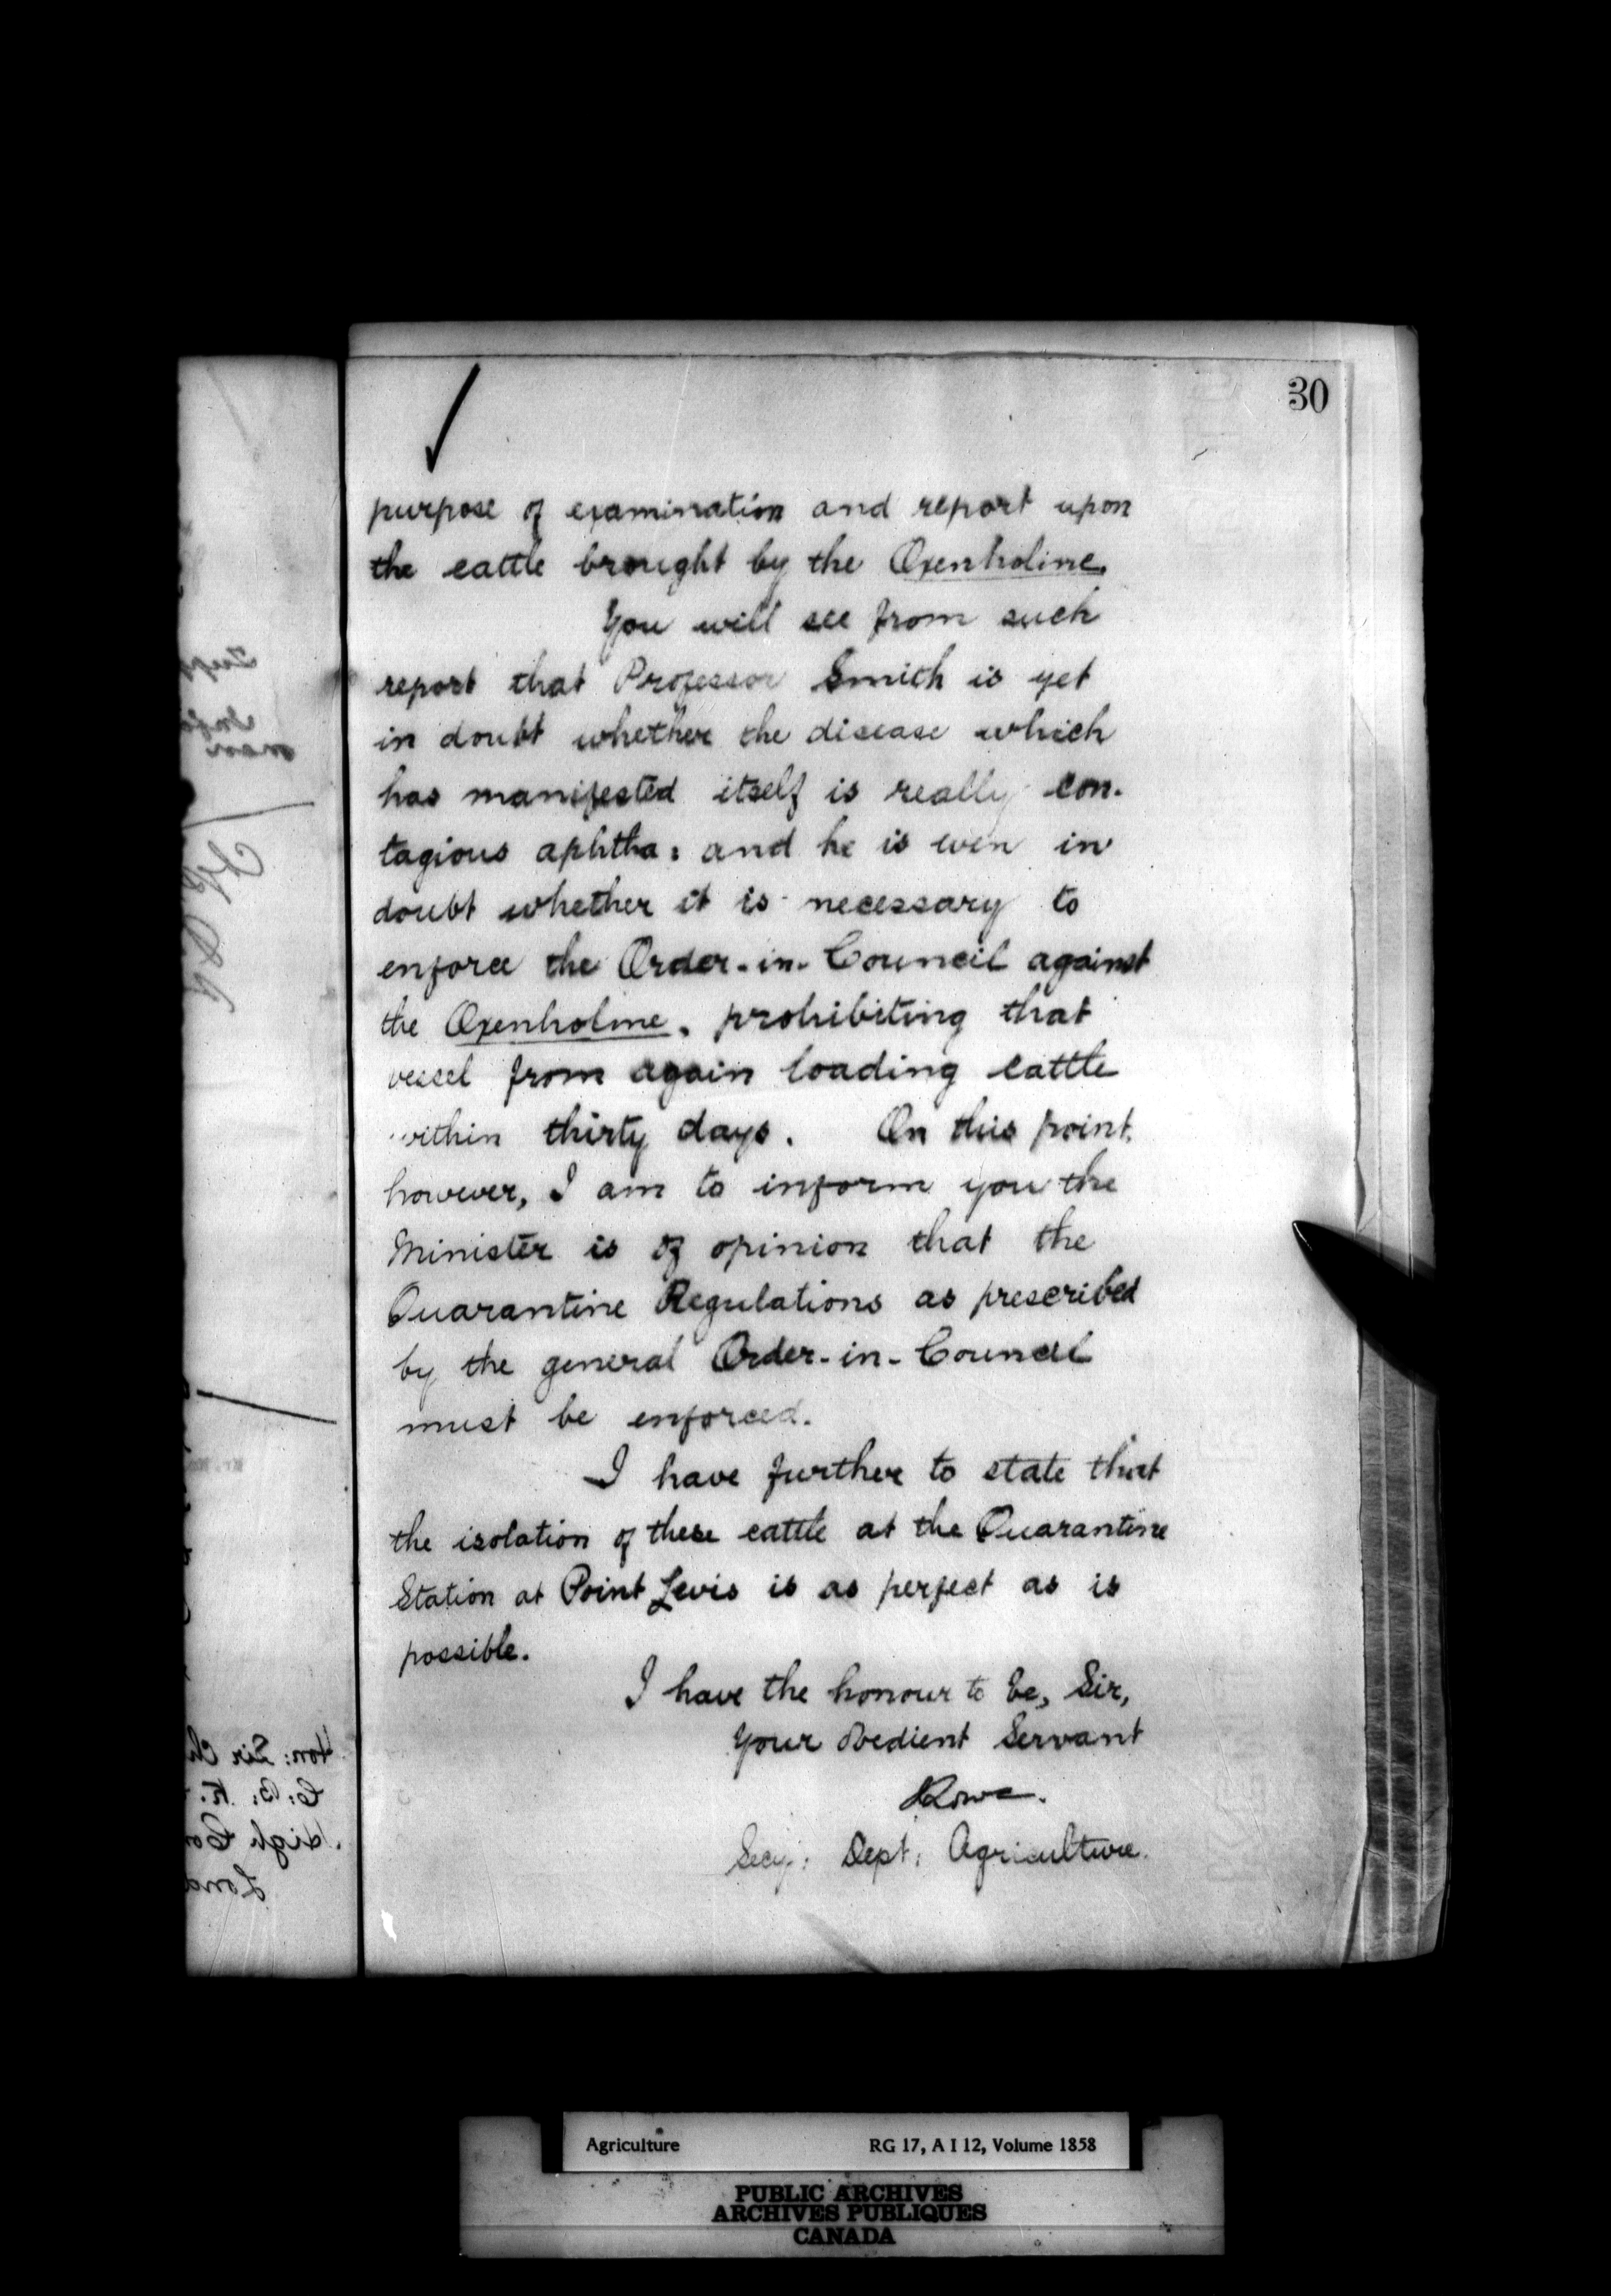 30
purpose of examination and report upon
the cattle brought by the Oxenholme.
You will see from such
report that Professor Smith is yet
in doubt whether the disease which
has manifested itself is really con-
tagious aphtha: and he is even in
doubt whether it is necessary to
enforce the Order-in-Council against
the Oxenholme, prohibiting that
vessel from again loading cattle
within thirty days. On this point,
however, I am to inform you the
Minister is of opinion that the
Quarantine Regulations as prescribed
by the general Order-in-Council
must be enforced.
I have further to state that
the isolation of these cattle at the Quarantine
Station at Point Levis is as perfect as is
possible.
I have the honour to be, Sir,
Your obedient Servant
Secy: Dept: Agriculture.
Hon: Sir Ch
C. B. K.
High Co
Lond
Agriculture RG 17, A I 12, Volume 1858
PUBLIC ARCHIVES
ARCHIVES PUBLIQUES
CANADA